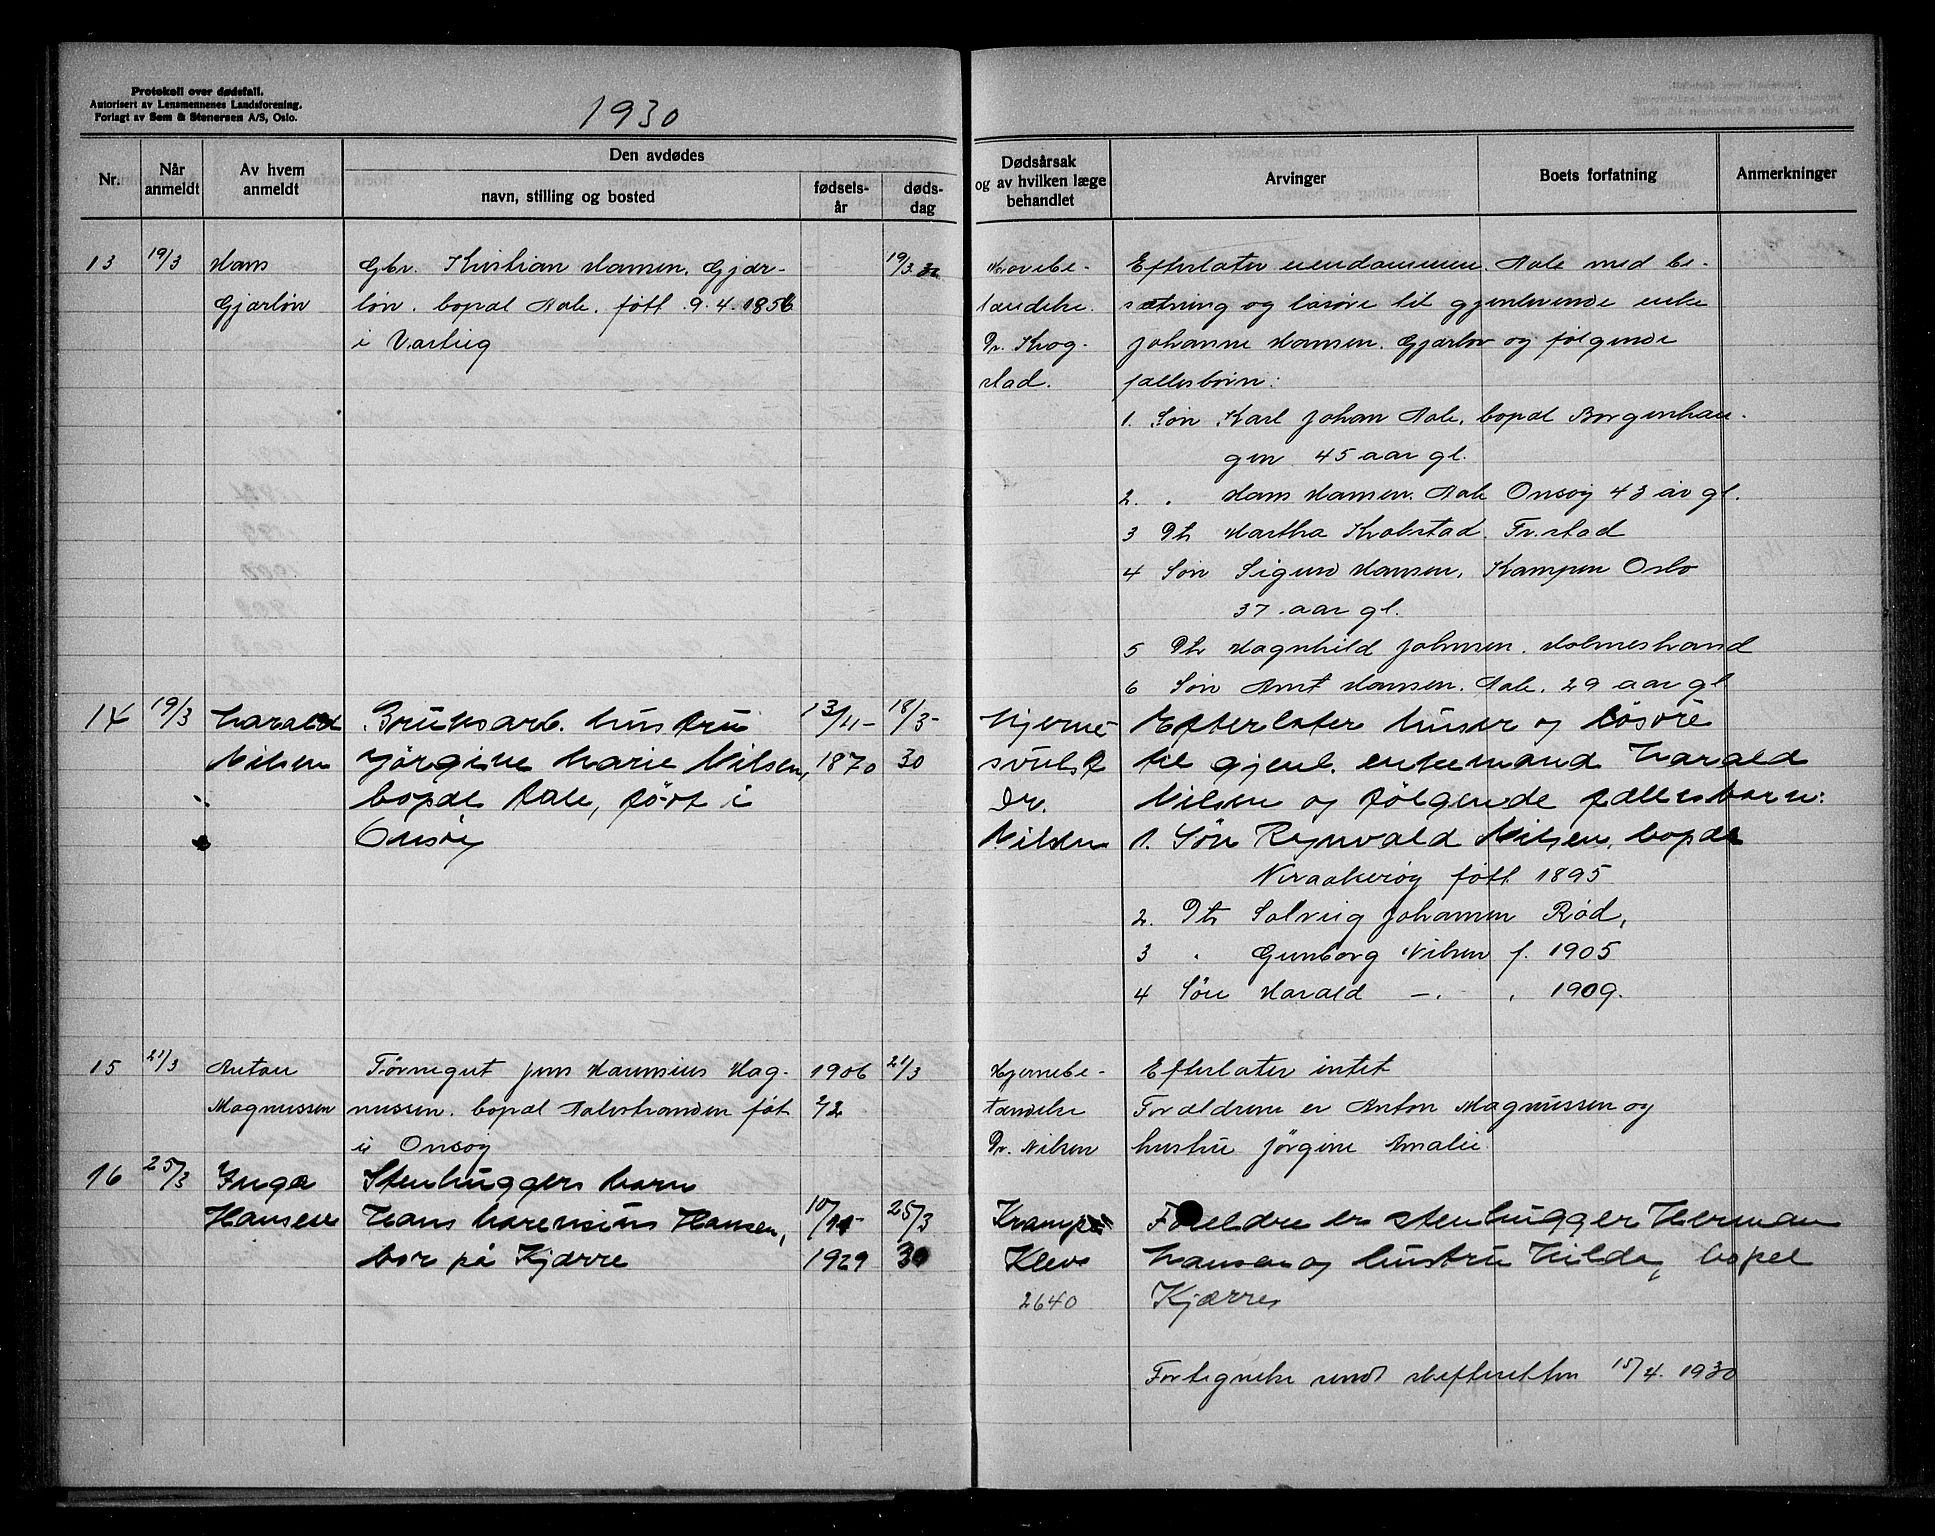 Protokoll over dødsfall.
Autorisert av Lensmennenes Landsforening.
Forlagt av Sem & Stenersen A/S, Oslo.
1930
Nr.
Når anmeldt
Av hvem anmeldt
Den avdødes
navn, stilling og bosted
fødsels-år
døds-dag
Dødsårsak og av hvilken læge behandlet
Arvinger
Boets forfatning
Anmerkninger
13 19/3 Hans
Gjærløv
Gbr. Kristian Hansen, Gjær-
løv. bopæl Aale. født 9.4.1856
i Varteig
19/3 30
Dr. Krog-
stad.
Efterlater eiendommen Aale med be-
sætning og løsøre til gjenlevende enke
Johanne Hansen. Gjærløv og følgende
fællesbørn:
1. Søn Karl Johan Aale, bopæl Borgenhau-
gen 45 aar gl.
2. " Hans Hansen. Aale Onsøy 43 år gl.
3 Dtr Martha Krabstad. Fr.stad
4 Søn Sigurd Hansen, Kampen Oslo
37 aar gl.
5 Dtr Magnhild Johnsen. Holmestrand
6 Søn Arnt Hansen. Aale. 29 aar gl
14 19/3 Harald
Nilsen
Bruksarb. hustru
Jørgine Marie Nilsen,
bopæl Aale, født i
Onsøy
13/4-
1870
18/3-
30
Hjerne
svulst
Dr.
Nilsen
Efterlater huser og løsøre
til gjenl. enkemand Harald
Nilsen og følgende fællesbarn:
1. Søn Ragnvald Nilsen, bopæl
Kraakerøy født 1895
2. Dtr Solveig Johansen Rød,
3 " Gunborg Nilsen f. 1905
4 Søn Harald — . " 1909.
15 21/3 Anton
Magnussen
Tørnegut Jens Marensius Mag-
nussen. bopæl Aalestranden født
i Onsøy
1906
2/2
21/3
Hjernebe-
tændelse
Dr. Nilsen
Efterlater intet
Foraldrene er Anton Magnussen og
hustru Jørgine Amalie.
16 25/3 Inga
Hansen
Stenhuggers barn
Hans Marensius Hansen,
bor på Kjærre
10/11-
1929
25/3
30
Krampe
Kleve
2640
Foreldre er stenhugger Herman
Hansen og hustru Hilda, bopæl
Kjærre
Fortegnelse sendt skifteretten 15/4. 1930